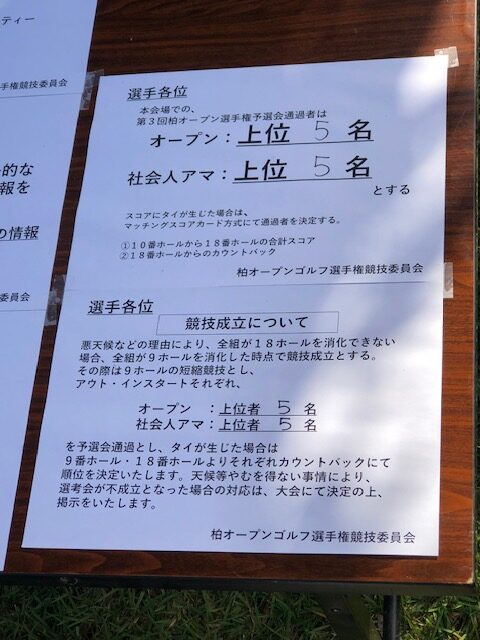 ティー
手権競技委員会
的な
報を
の情報
委員会
選手各位
本会場での、
第３回柏オープン選手権予選会通過者は
オープン：上位 5 名
社会人アマ：上位 5 名
とする
スコアにタイが生じた場合は、
マッチングスコアカード方式にて通過者を決定する。
①１０番ホールから１８番ホールの合計スコア
②１８番ホールからのカウントバック
柏オープンゴルフ選手権競技委員会
選手各位
競技成立について
悪天候などの理由により、全組が１８ホールを消化できない
場合、全組が９ホールを消化した時点で競技成立とする。
その際は９ホールの短縮競技とし、
アウト・インスタートそれぞれ、
オープン ：上位者 5 名
社会人アマ：上位者 5 名
を予選会通過とし、タイが生じた場合は
９番ホール・１８番ホールよりそれぞれカウントバックにて
順位を決定いたします。天候等やむを得ない事情により、
選考会が不成立となった場合の対応は、大会にて決定の上、
掲示をいたします。
柏オープンゴルフ選手権競技委員会